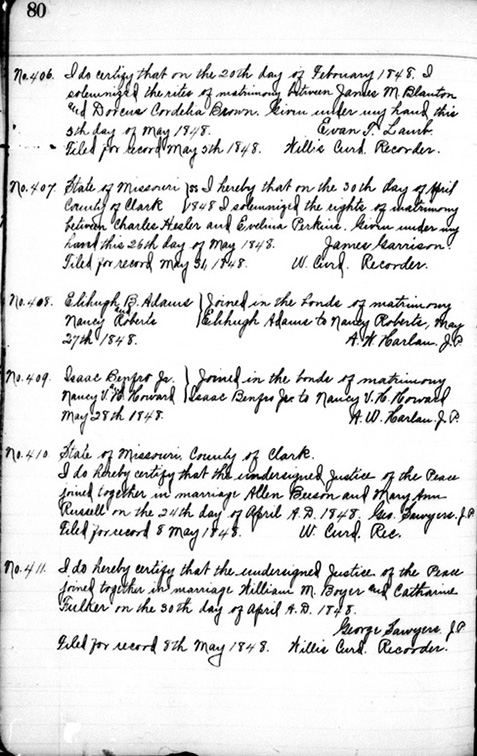 80
No. 406. I do certify that on the 20th day of February 1848. I
solemnized the rites of matrimony between James M. Blanton
and Dorcus Cordelia Brown. Given under my hand this
5th day of May 1848. Evan T. Lamb.
Filed for record May 5th 1848. Willis Curd. Recorder.
No. 407. State of Missouri } ss I hereby that on the 30th day of April
County of Clark } 1848 I solemnized the rights of matrimony
between Charles Hesler and Evelina Perkins. Given under my
hand this 26th day of May 1848. James Garrison.
Filed for record May 31, 1848. W. Curd. Recorder.
No. 408. Elihugh B. Adams } Joined in the bonds of matrimony
and
Nancy Roberts } Elihugh Adams to Nancy Roberts, May
27th 1848. A. W. Harlan. J.P.
No. 409. Isaac Renfro Jr. } Joined in the bonds of matrimony
and
Nancy V. H. Howard } Isaac Renfro Jr. to Nancy V. H. Howard
May 28th 1848. A. W. Harlan. J.P.
No. 410. State of Missouri, County of Clark.
I do hereby certify that the undersigned Justice of the Peace
joined together in marriage Allen Beeson and Mary Ann
Russell on the 24th day of April A.D. 1848. Geo. Sawyers. J.P.
Filed for record 8 May 1848. W. Curd. Rec.
No. 411. I do hereby certify that the undersigned Justice of the Peace
joined together in marriage William M. Boyer and Catharine
Fulker on the 30th day of April A.D. 1848.
George Sawyers. J.P.
Filed for record 8th May 1848. Willis Curd. Recorder.